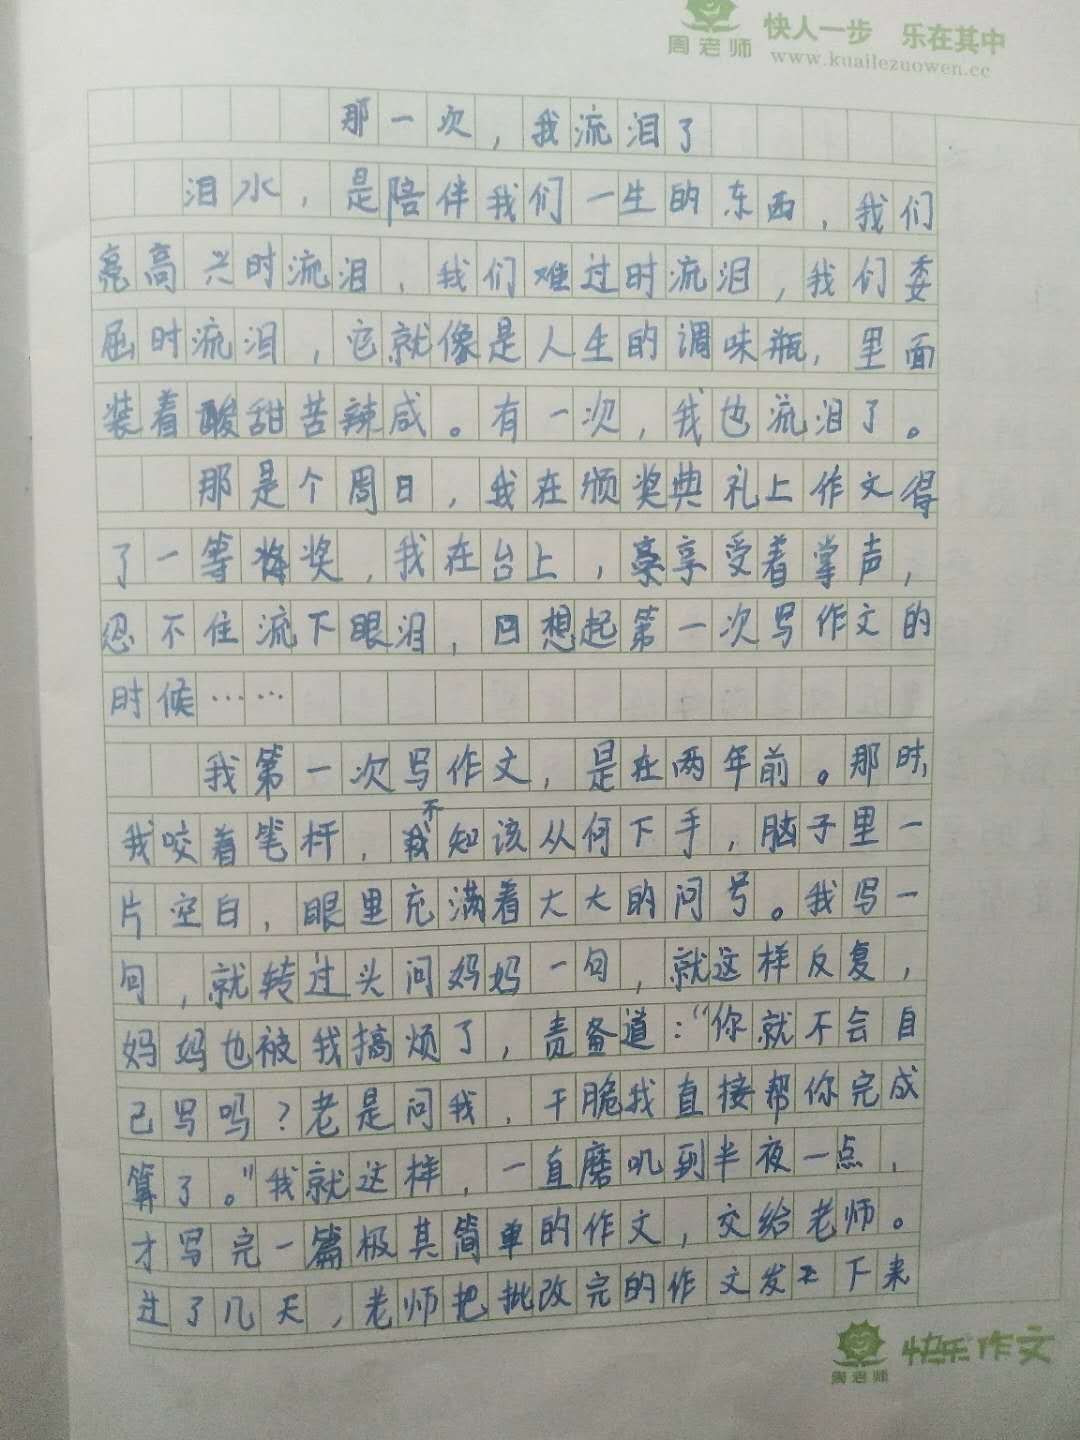 周老师 快人一步 乐在其中
www.kuailezuowen.cc
那一次，我流泪了
泪水，是陪伴我们一生的东西，我们
高兴时流泪，我们难过时流泪，我们委
屈时流泪，它就像是人生的调味瓶，里面
装着酸甜苦辣咸。有一次，我也流泪了。
那是个周日，我在颁奖典礼上作文得
了一等奖，我在台上，享受着掌声，
忍不住流下眼泪，回想起第一次写作文的
时候……
我第一次写作文，是在两年前。那时，
我咬着笔杆，不知该从何下手，脑子里一
片空白，眼里充满着大大的问号。我写一
句，就转过头问妈妈一句，就这样反复，
妈妈也被我搞烦了，责备道：“你就不会自
己写吗？老是问我，干脆我直接帮你完成
算了。”我就这样，一直磨叽到半夜一点，
才写完一篇极其简单的作文，交给老师。
过了几天，老师把批改完的作文发下来
周老师 快乐作文